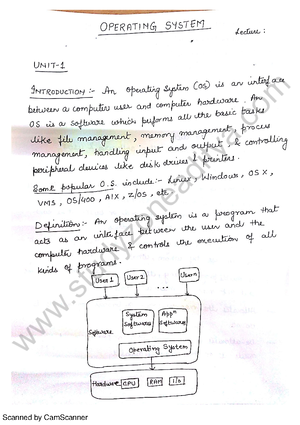 OPERATING SYSTEM
Lecture:
UNIT-1
INTRODUCTION:- An Operating System (OS) is an interface
between a computer user and computer hardware. An
OS is a software which performs all the basic tasks
like file management, memory management, process
management, handling input and output, & controlling
peripheral devices like disk drives & printers.
Some popular O.S. include:- Linux, Windows, OS X,
VMS, OS/400, AIX, z/OS, etc.
Definition:- An operating system is a program that
acts as an interface between the user and the
computer hardware & controls the execution of all
kinds of programs.
User1 User2 ... Usern
Software
System Softwares
Appn Software
Operating System
Hardware CPU RAM I/O
Scanned by CamScanner